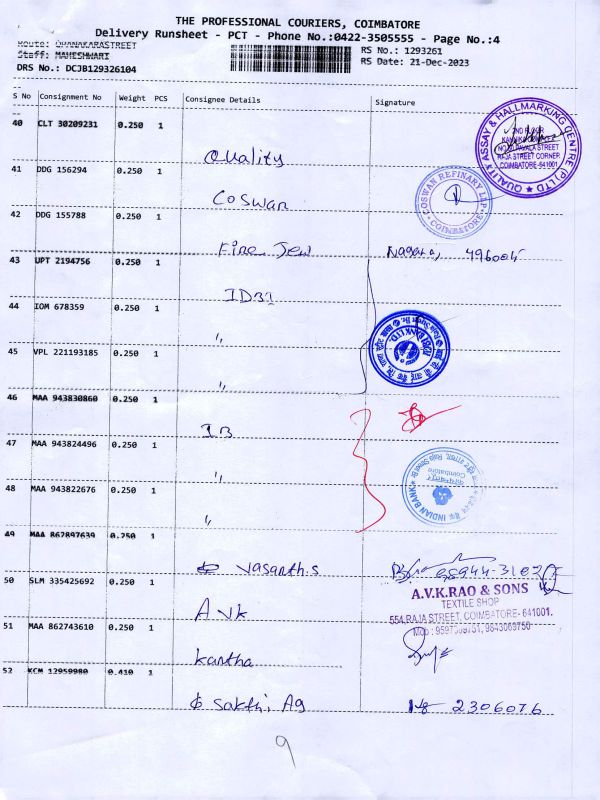 THE PROFESSIONAL COURIERS, COIMBATORE
Delivery Runsheet - PCT - Phone No.:0422-3505555 - Page No.:4
Route: DHANAKARASTREET
RS No.: 1293261
Staff: MAHESHWARI
RS Date: 21-Dec-2023
DRS No.: DCJB129326104
S No Consignment No Weight PCS Consignee Details Signature
40 CLT 30209231 0.250 1 Quality
QUALITY ASSAY & HALLMARKING CENTRE (P) LTD
2ND FLOOR
STREET
RAJA STREET CORNER
COIMBATORE-641001
41 DDG 156294 0.250 1 Coswan
COSWAN REFINERY LLP
COIMBATORE
42 DDG 155788 0.250 1 Fine Jew
43 UPT 2194756 0.250 1 IDBI
44 IOM 678359 0.250 1 "
45 VPL 221193185 0.250 1 "
46 MAA 943830860 0.250 1 IB
47 MAA 943824496 0.250 1 "
INDIAN BANK
Coimbatore
48 MAA 943822676 0.250 1 "
49 MAA 862897639 0.250 1 Vasanth.s
50 SLM 335425692 0.250 1 AVK
A.V.K.RAO & SONS
TEXTILE SHOP
554,RAJA STREET, COIMBATORE- 641001.
51 MAA 862743610 0.250 1 Kantha
52 KCM 12959980 0.410 1 Sakthi Ag
2306076
9